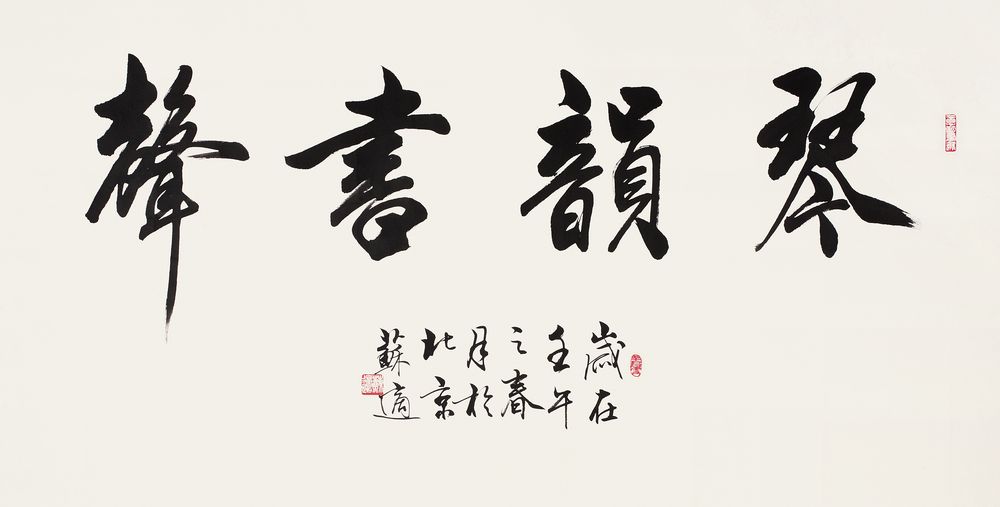 琴韻書聲
歲在
壬午
之春
月於
北京
蘇適